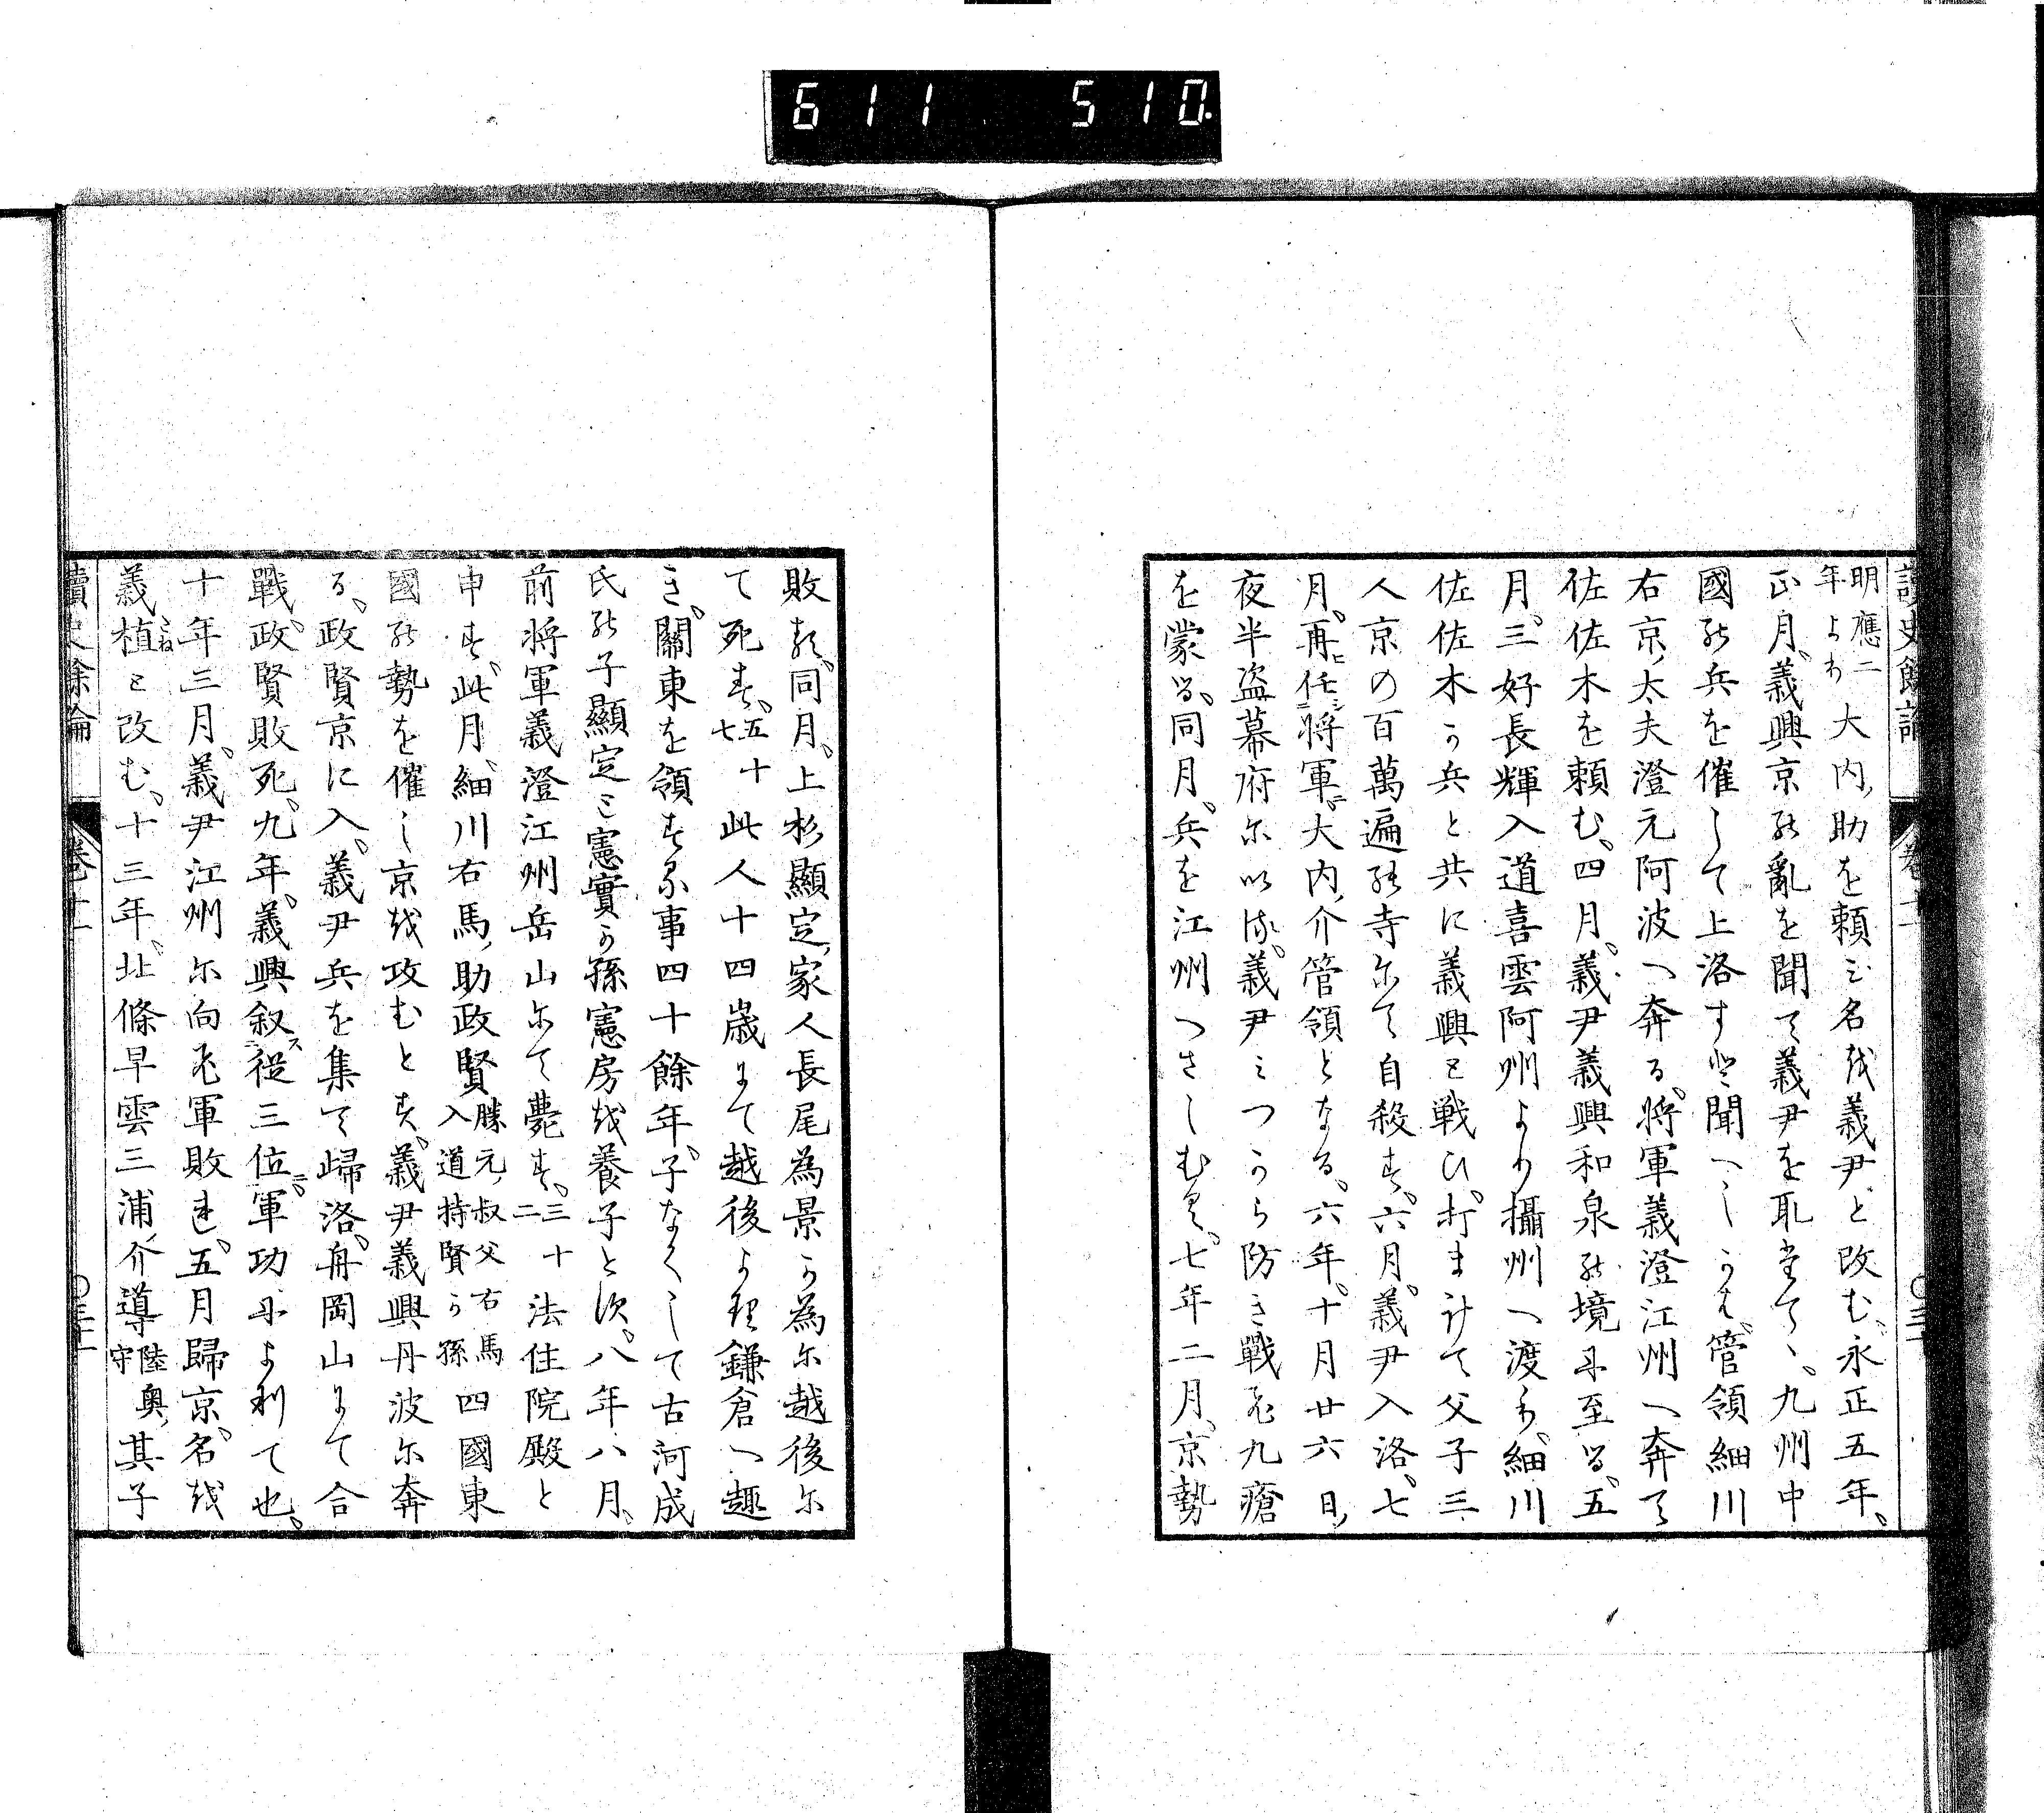 611 510
讀史餘論 卷十一
明應二年より大内助を頼ひ名越義尹と改む永正五年
正月義興京の亂を聞て義尹を取立て九州中
國の兵を催して上洛すと聞へしかは管領細川
右京大夫澄元阿波へ奔る將軍義澄江州へ奔て
佐佐木を頼む四月義尹義興和泉の境に至る五
月三好長輝入道喜雲阿州より攝州へ渡り細川
佐佐木か兵と共に義興と戰ひ打まけて父子三
人京の百萬遍の寺にて自殺す六月義尹入洛七
月再ヒ任シ將軍ニ大内介管領となる六年十月廿六日
夜半盗幕府に以流義尹みつから防き戰ひ九瘡
を蒙る同月兵を江州へさしむる七年二月京勢
敗る同月上杉顯定家人長尾為景か為に越後に
て死す五十七此人十四歳にて越後より鎌倉へ趣
き關東を領する事四十餘年子なくして古河成
氏の子顯定と憲實か孫憲房を養子とす八年八月
前将軍義澄江州岳山にて薨す三十二法住院殿と
申す此月細川右馬助政賢勝元叔父右馬入道持賢か孫四國東
國の勢を催し京を攻むとす義尹義興丹波に奔
る政賢京に入義尹兵を集て歸洛舟岡山にて合
戰政賢敗死九年義興叙ス從三位ニ軍功によりて也
十年三月義尹江州に向ひ軍敗れ五月歸京名を
義植たねと改む十三年北條早雲三浦介導陸奥守其子
讀史餘論 卷十一